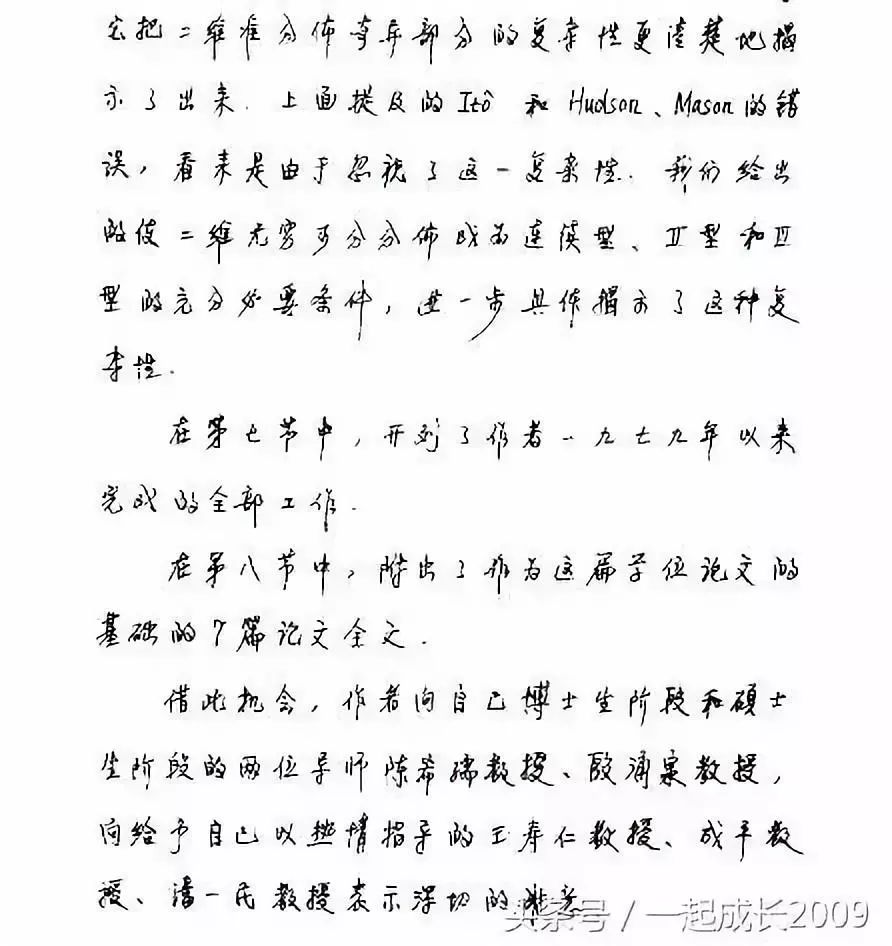 它把二维准分佈奇异部分的复杂性更清楚地揭
示了出来. 上面提及的Itô 和 Hudson、Mason的错
误, 看来是由于忽视了这一复杂性. 我们给出
的使二维无穷可分分佈成为连续型、II型和III
型的充分必要条件, 进一步具体揭示了这种复
杂性.
在第七节中, 开列了作者一九七九年以来
完成的全部工作.
在第八节中, 附出了作为这篇学位论文的
基础的7篇论文全文.
借此机会, 作者向自己博士生阶段和硕士
生阶段的两位导师陈希孺教授、殷涌泉教授,
向给予自己以热情指导的王寿仁教授、成平教
授、潘一民教授表示深切的谢意
头条号 / 一起成长2009